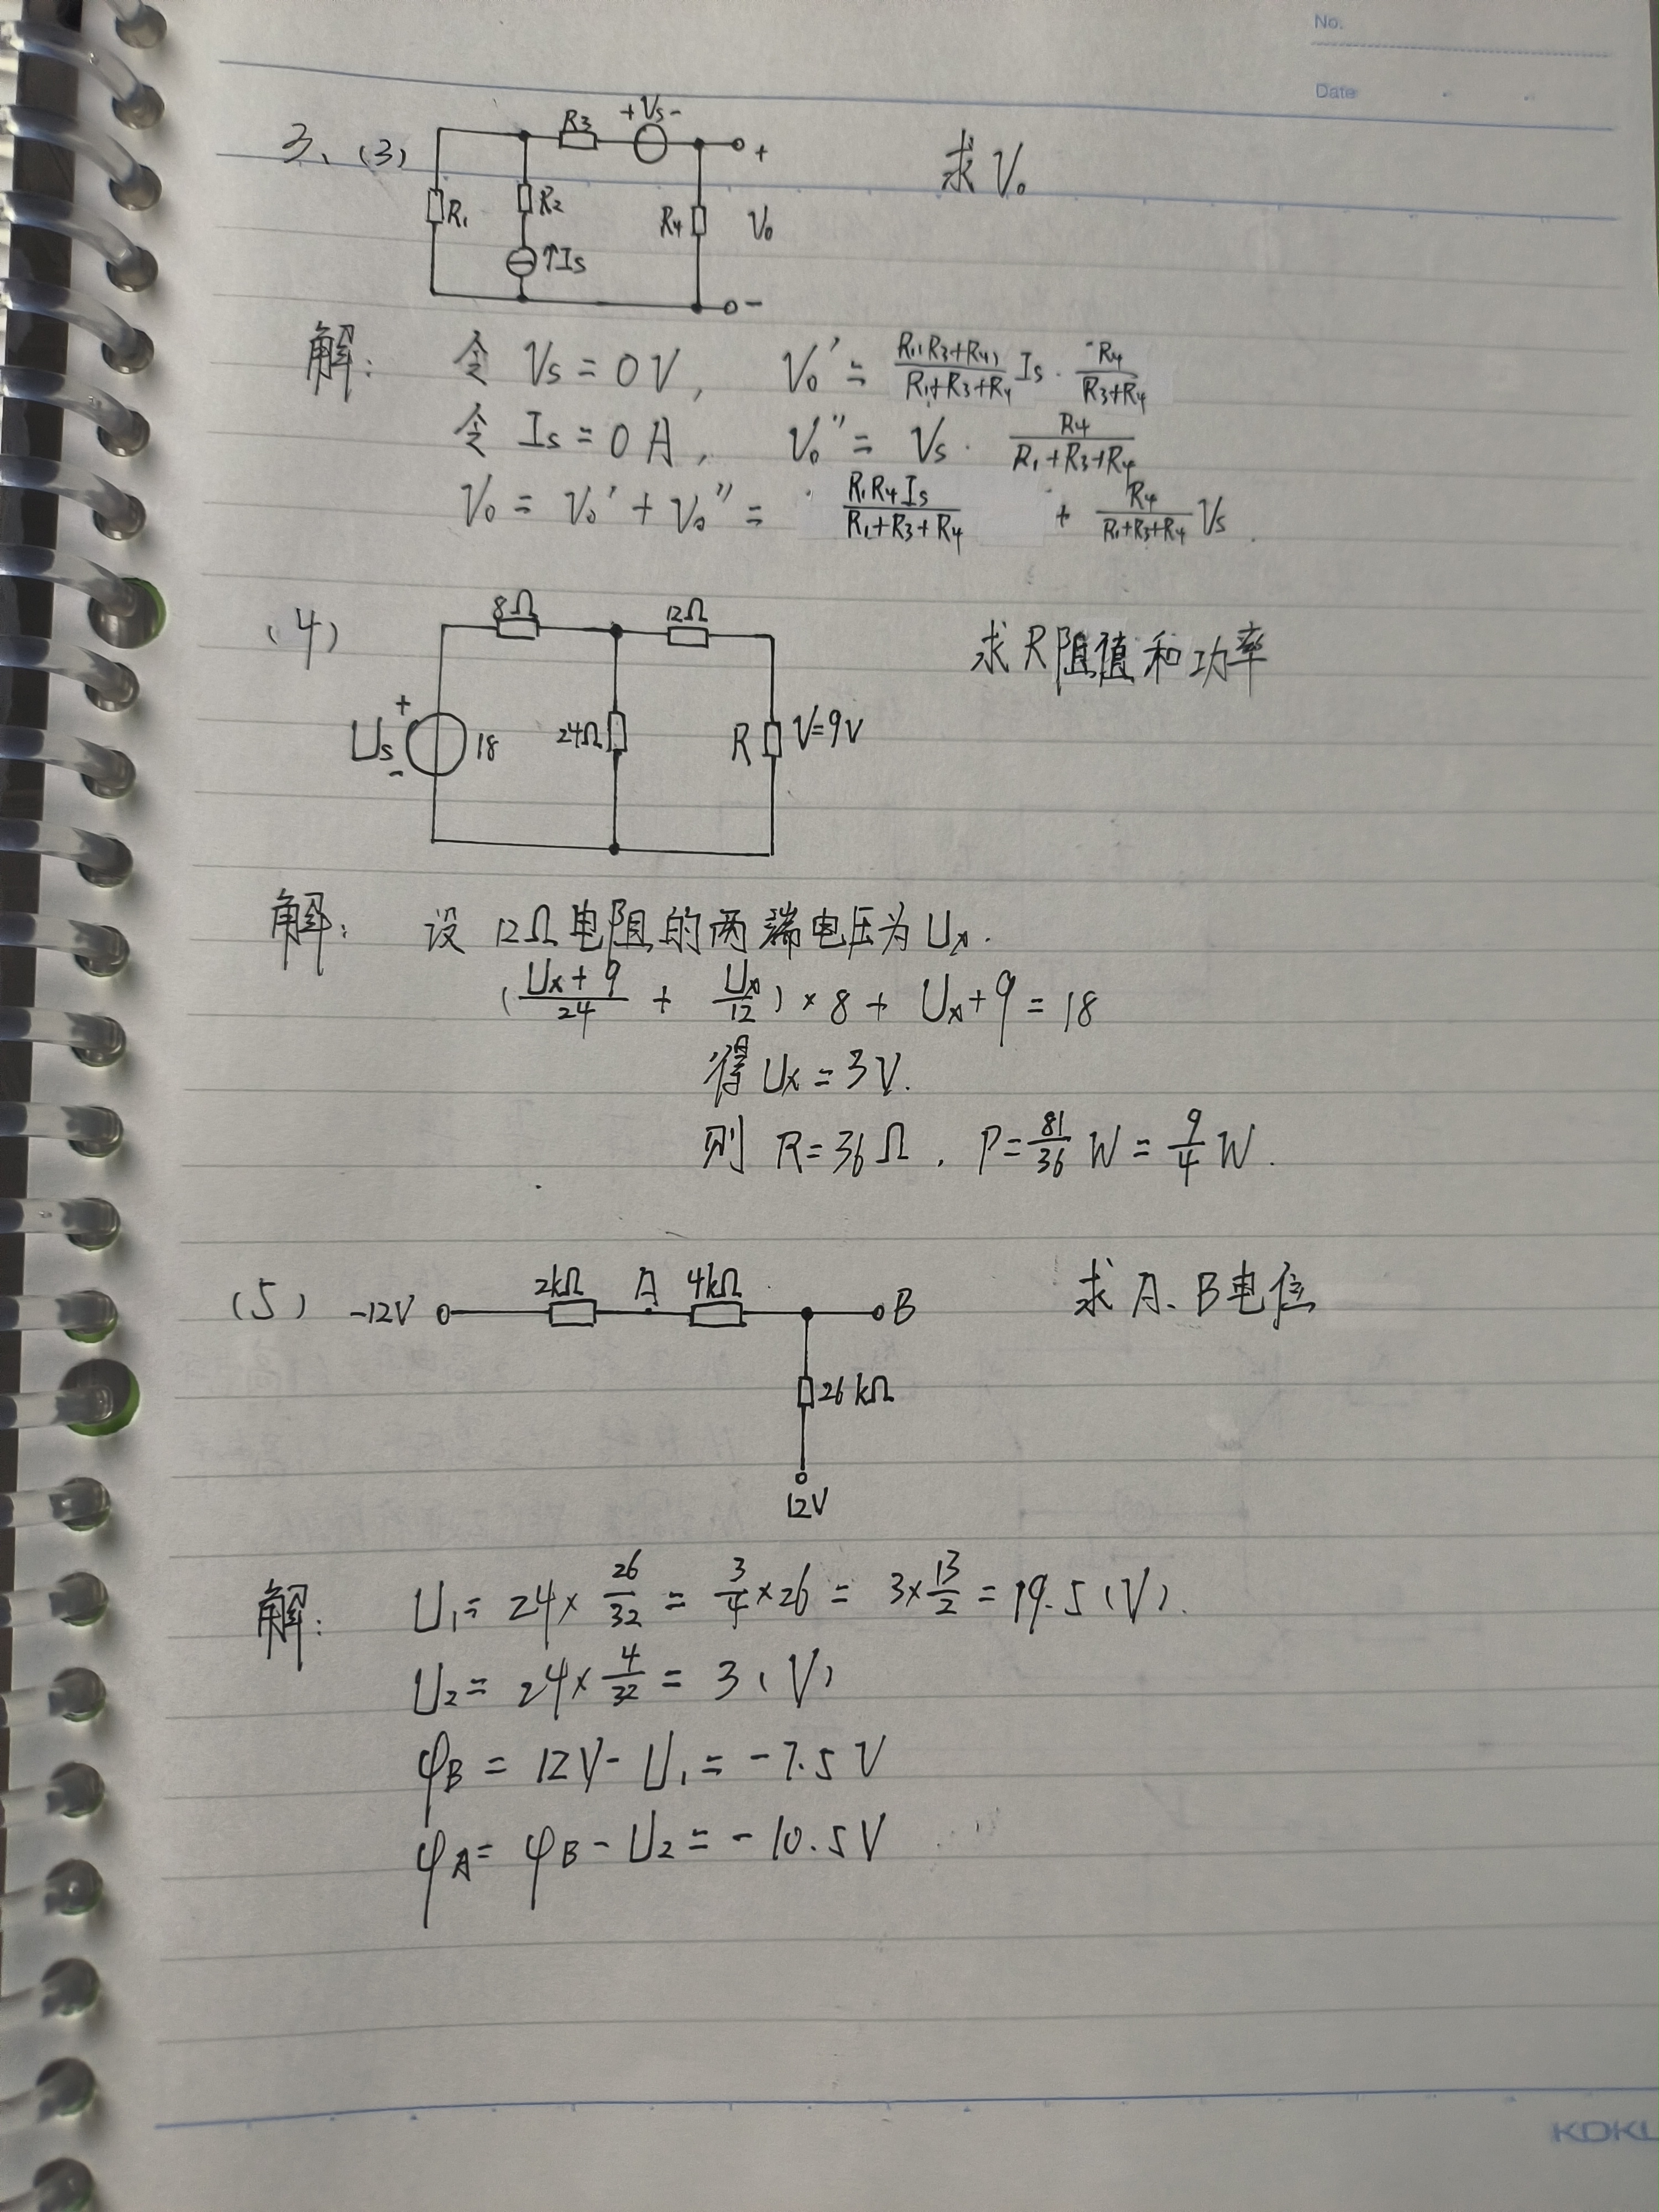 No.
Date
3、(3) R3 +Vs- + 求V₀
R₁ R₂ R4 V₀
↑Is
-
解: 令 Vs = 0V, V₀' = R₁(R3+R4)/(R₁+R3+R4) Is · R4/(R3+R4)
令 Is = 0A, V₀'' = Vs · R4/(R₁+R3+R4)
V₀ = V₀' + V₀'' = R₁R4Is/(R₁+R3+R4) + R4/(R₁+R3+R4) Vs.
(4) 8Ω 12Ω 求R阻值和功率
+
Us 18 24Ω R V=9V
-
解: 设 12Ω电阻的两端电压为Ux.
((Ux+9)/24 + Ux/12) × 8 + Ux+9 = 18
得 Ux = 3V.
则 R = 36Ω, P = 81/36 W = 9/4 W.
(5) -12V 2kΩ A 4kΩ B 求A、B电位
26kΩ
12V
解: U₁ = 24 × 26/32 = 3/4 × 26 = 3 × 13/2 = 19.5(V).
U₂ = 24 × 4/32 = 3(V)
φB = 12V - U₁ = -7.5V
φA = φB - U₂ = -10.5V